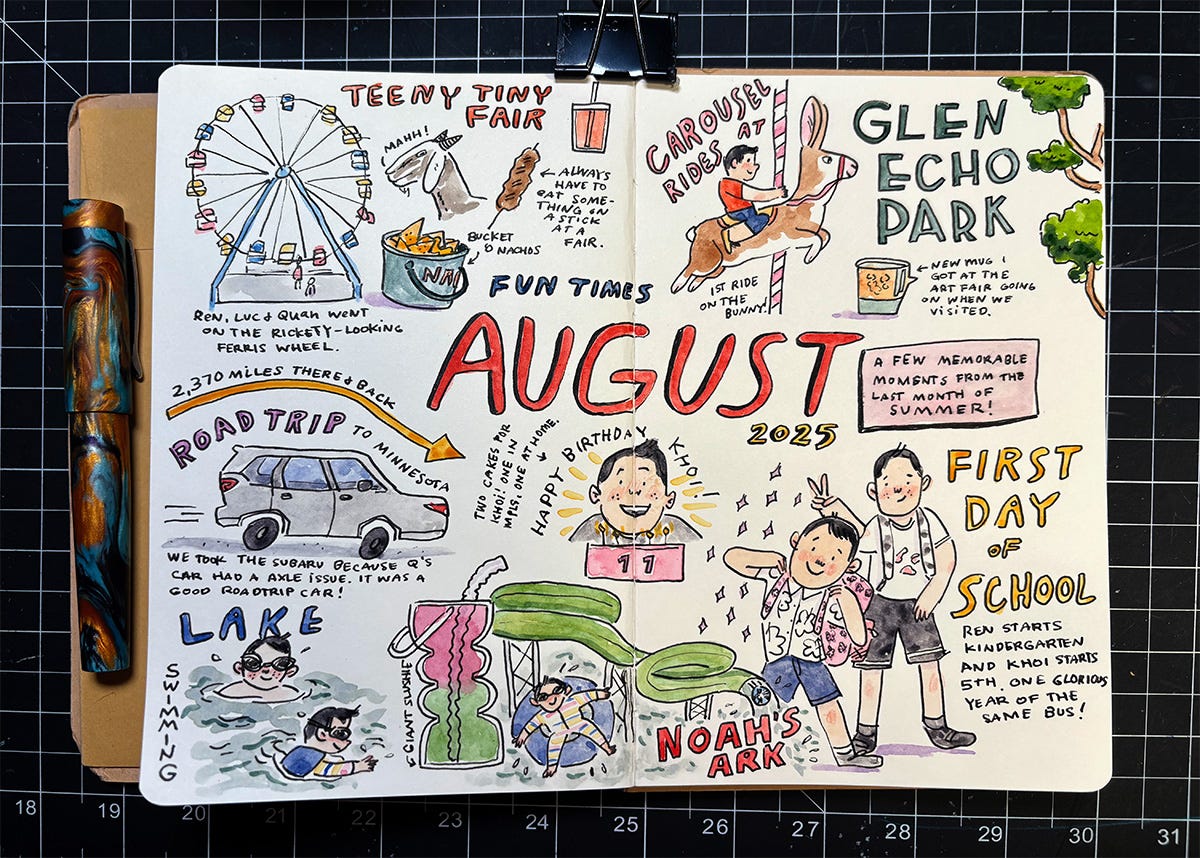 TEENY TINY
FAIR
MAHH!
← ALWAYS
HAVE TO
EAT SOME-
THING ON
A STICK
AT A
FAIR.
BUCKET
O NACHOS
REN, LUC & QUAN WENT
ON THE RICKETY-LOOKING
FERRIS WHEEL.
FUN TIMES
CAROUSEL
AT
RIDES
1ST RIDE
ON THE
BUNNY.
GLEN
ECHO
PARK
← NEW MUG I
GOT AT THE
ART FAIR GOING
ON WHEN WE
VISITED.
AUGUST
2025
A FEW MEMORABLE
MOMENTS FROM THE
LAST MONTH OF
SUMMER!
2,370 MILES THERE & BACK
ROAD TRIP TO MINNESOTA
WE TOOK THE SUBARU BECAUSE Q'S
CAR HAD A AXLE ISSUE. IT WAS A
GOOD ROADTRIP CAR!
TWO CAKES FOR
KHOI: ONE IN
MPLS, ONE AT HOME.
HAPPY BIRTHDAY KHOI!
11
LAKE
SWIMMING
GIANT SLUSHIE
NOAH'S
ARK
FIRST
DAY
OF
SCHOOL
REN STARTS
KINDERGARTEN
AND KHOI STARTS
5TH. ONE GLORIOUS
YEAR OF THE
SAME BUS!
18 19 20 21 22 23 24 25 26 27 28 29 30 31